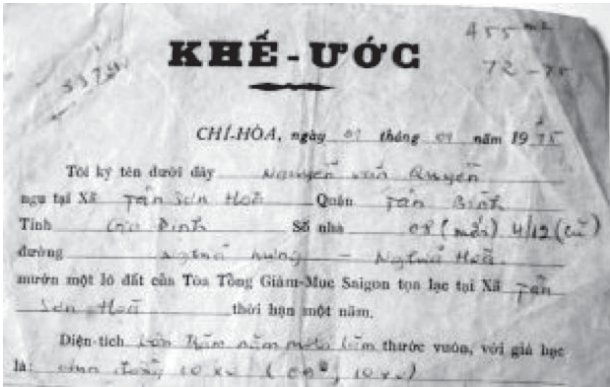 455 m2
KHẾ-ƯỚC
72-75
CHÍ-HÒA, ngày 01 tháng 01 năm 1975
Tôi ký tên dưới đây Nguyễn văn Quyền
ngụ tại Xã Tân Sơn Hoà Quận Tân Bình
Tỉnh Gia Định Số nhà 08 (mới) 4/12 (cũ)
đường Nghĩa hưng - Nghĩa Hoà
mướn một lô đất của Tòa Tổng Giám-Mục Saigon tọa lạc tại Xã Tân
Sơn Hoà thời hạn một năm.
Diện-tích bốn Trăm năm mươi lăm thước vuông, với giá học
là: